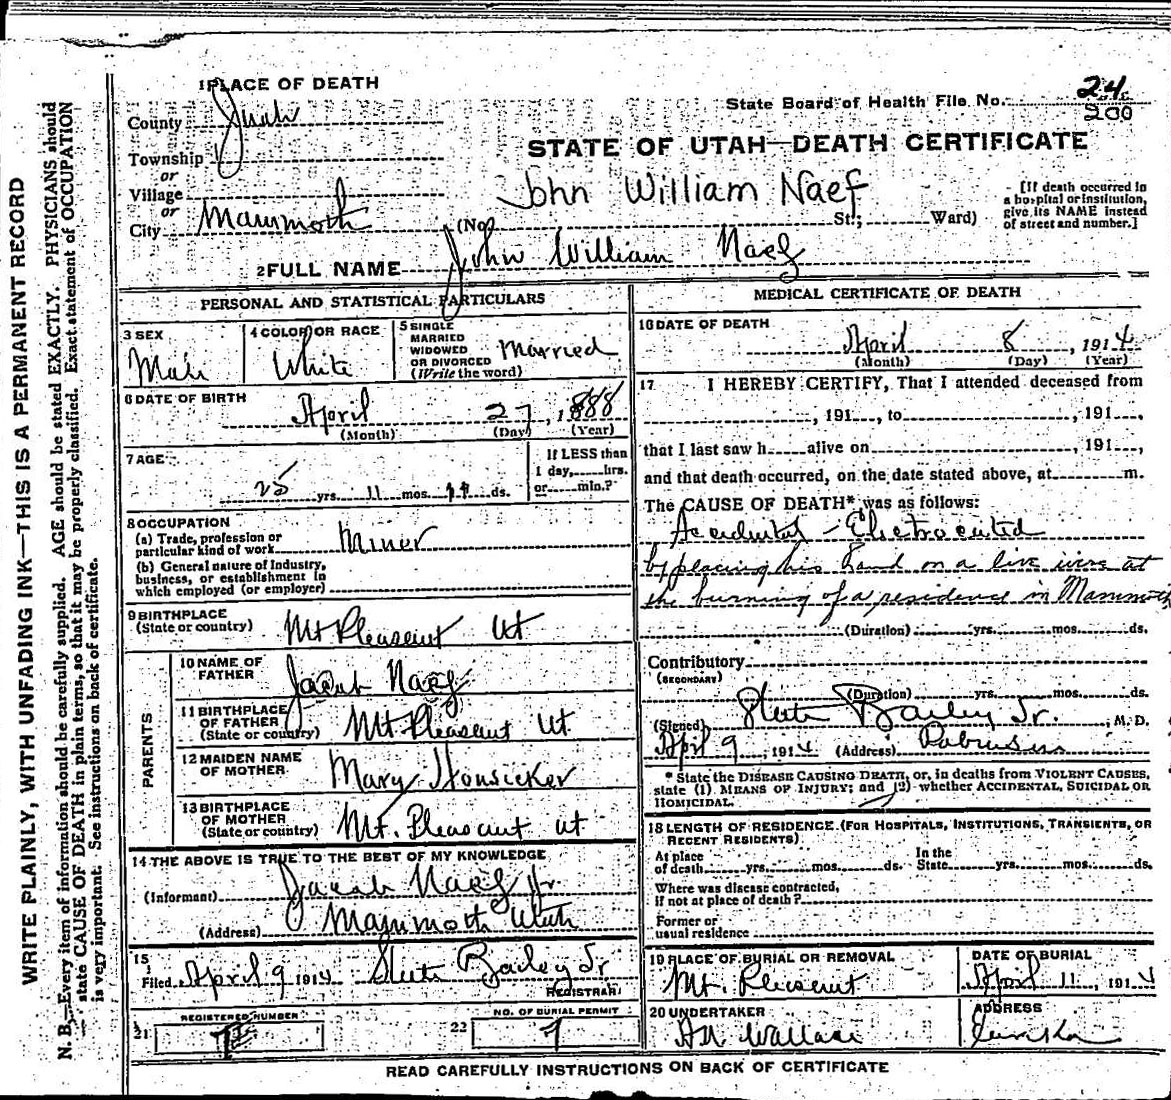 WRITE PLAINLY, WITH UNFADING INK—THIS IS A PERMANENT RECORD
N. B.—Every item of information should be carefully supplied. AGE should be stated EXACTLY. PHYSICIANS should
state CAUSE OF DEATH in plain terms, so that it may be properly classified. Exact statement of OCCUPATION
is very important. See instructions on back of certificate.
1 PLACE OF DEATH
County Juab
Township
or
Village
or
City Mammoth
State Board of Health File No. 24
200
STATE OF UTAH—DEATH CERTIFICATE
John William Naef
(No. St; Ward)
[If death occurred in
a hospital or institution,
give its NAME instead
of street and number.]
2 FULL NAME John William Naef
PERSONAL AND STATISTICAL PARTICULARS
3 SEX
Male
4 COLOR OR RACE
White
5 SINGLE
MARRIED
WIDOWED
OR DIVORCED
(Write the word)
Married
6 DATE OF BIRTH
April 27, 1888
(Month) (Day) (Year)
7 AGE
25 yrs. 11 mos. ds.
If LESS than
1 day, hrs.
or min.?
8 OCCUPATION
(a) Trade, profession or
particular kind of work Miner
(b) General nature of Industry,
business, or establishment in
which employed (or employer)
9 BIRTHPLACE
(State or country) Mt Pleasant Ut
PARENTS
10 NAME OF
FATHER Jacob Naef
11 BIRTHPLACE
OF FATHER
(State or country) Mt Pleasant Ut
12 MAIDEN NAME
OF MOTHER Mary
13 BIRTHPLACE
OF MOTHER
(State or country) Mt. Pleasant Ut
14 THE ABOVE IS TRUE TO THE BEST OF MY KNOWLEDGE
(Informant) Jacob Naef Jr.
(Address) Mammoth Utah
15
Filed April 9 1914 Bailey Jr
REGISTRAR
21 REGISTERED NUMBER
7
22 NO. OF BURIAL PERMIT
7
MEDICAL CERTIFICATE OF DEATH
16 DATE OF DEATH
April 8, 1914
(Month) (Day) (Year)
17 I HEREBY CERTIFY, That I attended deceased from
, 191 , to , 191 ,
that I last saw h alive on , 191 ,
and that death occurred, on the date stated above, at m.
The CAUSE OF DEATH* was as follows:
Accidental - Electrocuted
by placing his hand on a live wire at
the burning of a residence in Mammoth
(Duration) yrs. mos. ds.
Contributory
(SECONDARY)
(Duration) yrs. mos. ds.
(Signed) Bailey Jr., M. D.
April 9, 1914 (Address)
* State the DISEASE CAUSING DEATH, or, in deaths from VIOLENT CAUSES,
state (1) MEANS OF INJURY; and (2) whether ACCIDENTAL, SUICIDAL OR
HOMICIDAL.
18 LENGTH OF RESIDENCE (FOR HOSPITALS, INSTITUTIONS, TRANSIENTS, OR
RECENT RESIDENTS)
At place
of death yrs. mos. ds.
In the
State yrs. mos. ds.
Where was disease contracted,
if not at place of death?
Former or
usual residence
19 PLACE OF BURIAL OR REMOVAL
Mt. Pleasant
DATE OF BURIAL
April 11, 1914
20 UNDERTAKER
Wallace
ADDRESS
Eureka
READ CAREFULLY INSTRUCTIONS ON BACK OF CERTIFICATE